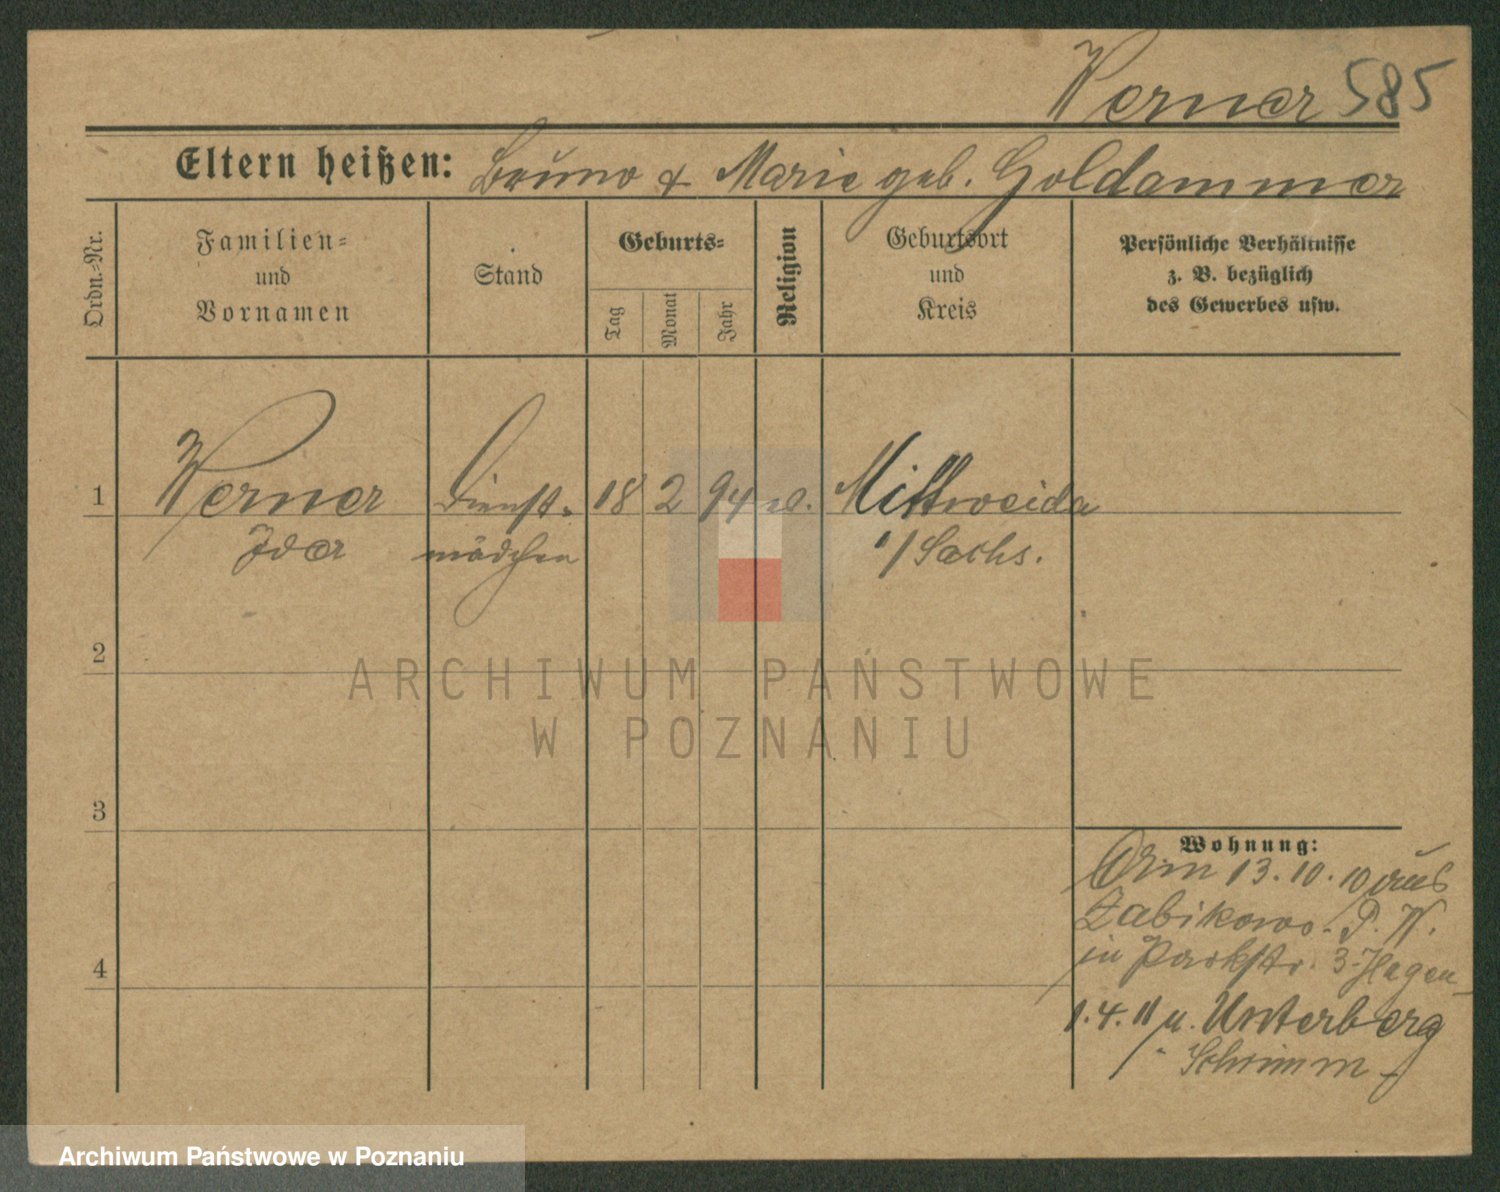 Werner 585
Eltern heißen: Bruno & Marie geb. Goldammer
Ordn.-Nr.
Familien-
und
Vornamen
Stand
Geburts-
Tag
Monat
Jahr
Religion
Geburtsort
und
Kreis
Persönliche Verhältnisse
z. B. bezüglich
des Gewerbes usw.
1 Werner Dienst- 18 2 94 Mittweida
mädchen i/Sachs.
2
3
4
Wohnung:
13.10.10 aus
Zabikowo - P. W.
in Parkstr. 3 Hagen
1.4.11 n. Unterberg
Schrimm -
ARCHIWUM PAŃSTWOWE
W POZNANIU
Archiwum Państwowe w Poznaniu